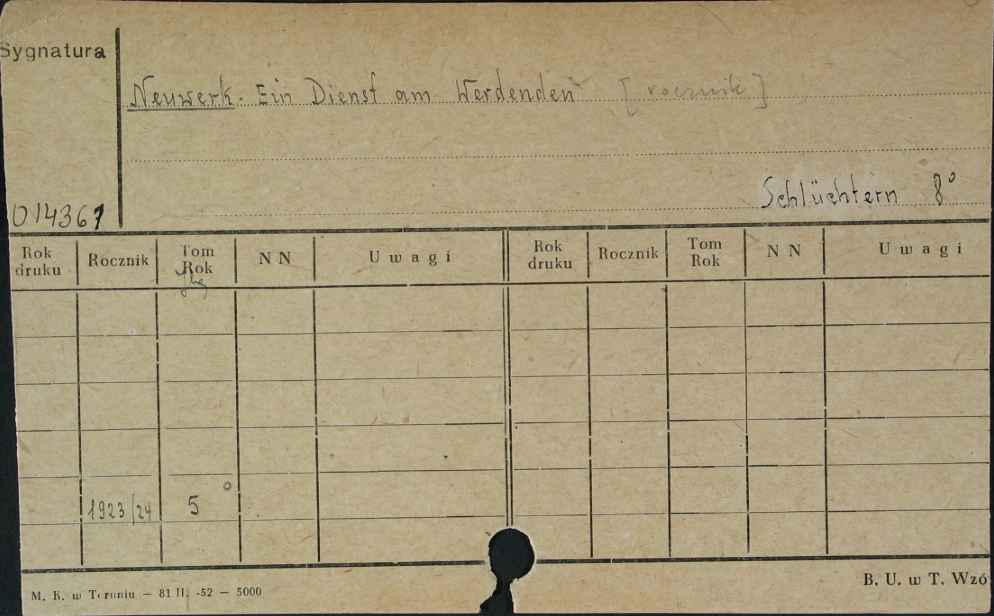 Sygnatura
Neuwerk. Ein Dienst am Werdenden [rocznik]
Schlüchtern 8°
014367
Rok druku Rocznik Tom Rok NN Uwagi Rok druku Rocznik Tom Rok NN Uwagi
Jhg
1923/24 5
M. K. w Toruniu — 81 II. -52 — 5000
B. U. w T. Wzó